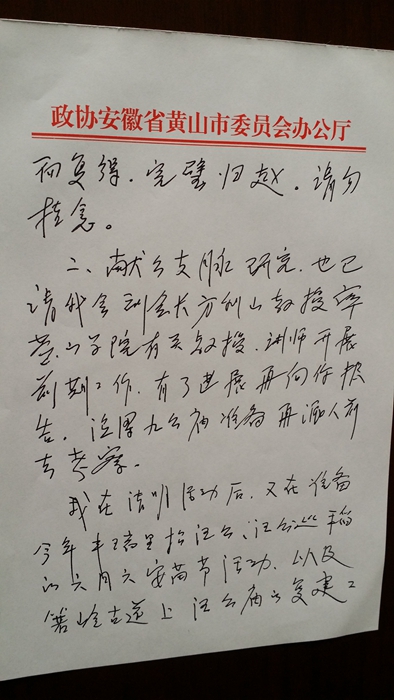 政协安徽省黄山市委员会办公厅
而复得，完璧归赵。请勿
挂念。
二、献公支脉研究，也已
请我会副会长方利山教授率
黄山学院有关教授、讲师开展
前期工作，有了进展再向你报
告。汪周九公庙准备再派人前
去考察。
我在清明活动后，又在准备
今年丰瑞里抬汪公、汪公巡稻
的六月六安苗节活动，以及
箬岭古道上汪公庙的复建工